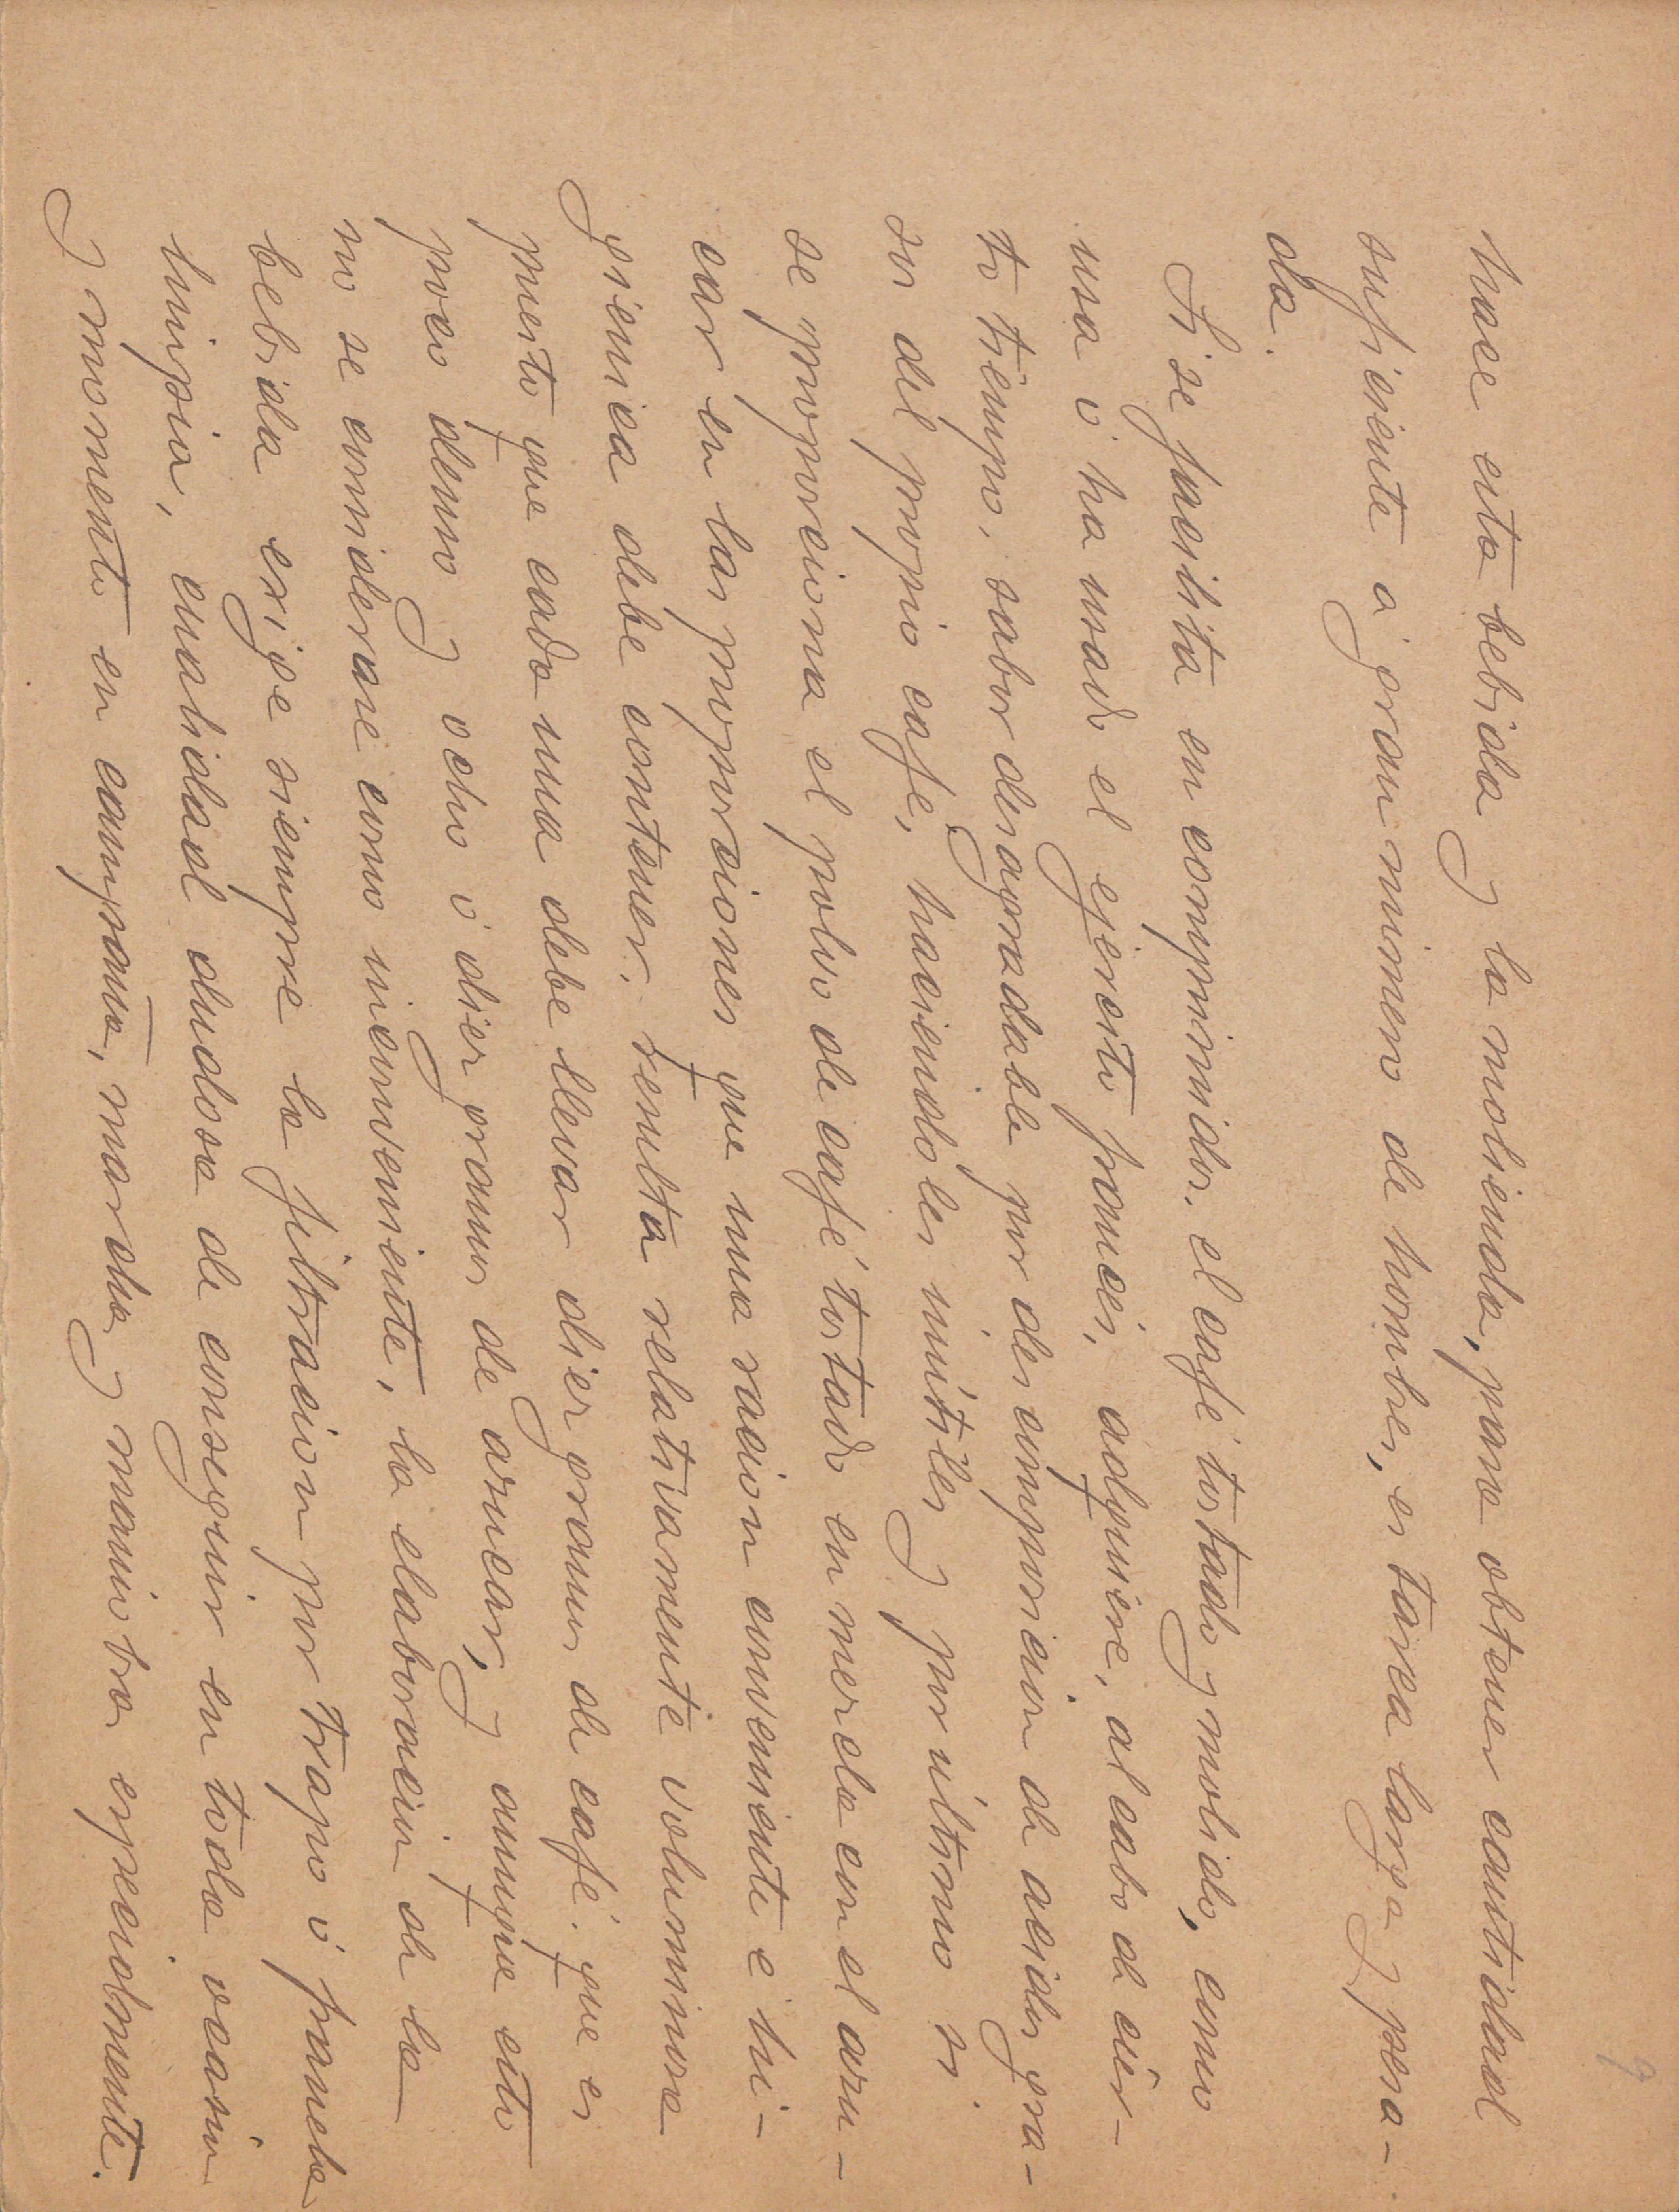 9
hace esta bebida y la molienda, para obtener cantidad
suficiente á gran número de hombres, es tarea larga y pesa-
da.
Si se facilita en comprimidos, el café tostado y molido, como
usa ó ha usado el ejercito francés, adquiere, al cabo de cier-
to tiempo, sabor desagradable por descomposición de acidos gra-
sos del propio café, haciendoles inútiles y por último si
se proporciona el polvo de café tostado en mezcla con el azu-
car en las proporciones que una racion conveniente é hi-
gienica debe contener, resulta relativamente voluminosa
puesto que cada una debe llevar diez gramos de café, que es
poco denso y ocho ó diez gramos de azucar, y aunque esto
no se considerase como inconveniente, la elaboración de la
bebida exige siempre la filtracion por trapo ó franela
limpia, cualidad dudosa de conseguir en toda ocasión
y momento en campaña, marcha y maniobra especialmente.